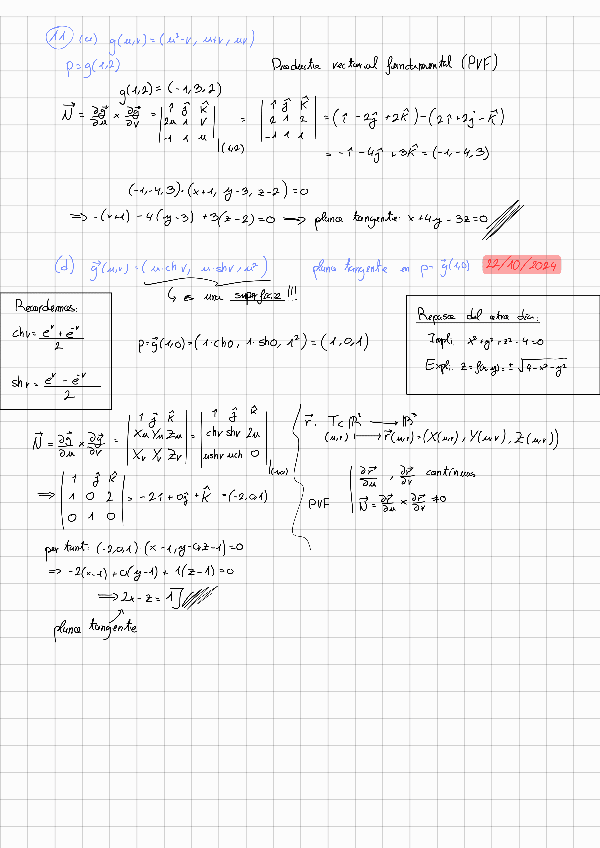 11 (a) g(u,v) = (u²-v, u+v, uv)
p = g(1,2)
Producte vectorial fonamental (PVF)
g(1,2) = (-1,3,2)
N⃗ = ∂g⃗/∂u × ∂g⃗/∂v = | î ĵ k̂ | = | î ĵ k̂ | = (î - 2ĵ + 2k̂) - (2î + 2ĵ - k̂)
| 2u 1 v | | 2 1 2 |
| -1 1 u | (1,2) | -1 1 1 |
= -î - 4ĵ + 3k̂ = (-1,-4,3)
(-1,-4,3)·(x+1, y-3, z-2) = 0
⟹ -(x+1) - 4(y-3) + 3(z-2) = 0 ⟶ plano tangente: x+4y-3z=0
(d) g⃗(u,v) = (u·chv, u·shv, u²) plano tangente en p = g⃗(1,0) 22/10/2024
↳ es una superficie!!!
Recordemos:
chv = (eᵛ + e⁻ᵛ)/2
shv = (eᵛ - e⁻ᵛ)/2
p = g⃗(1,0) = (1·ch0, 1·sh0, 1²) = (1,0,1)
Repaso del otro dia:
Impl. x²+y²+z²-4=0
Expl. z=f(x,y)=±√(4-x²-y²)
N⃗ = ∂g⃗/∂u × ∂g⃗/∂v = | î ĵ k̂ | = | î ĵ k̂ |
| Xu Yu Zu | | chv shv 2u |
| Xv Yv Zv | | ushv uch 0 | (1,0)
⟹ | î ĵ k̂ | = -2î + 0ĵ + k̂ = (-2,0,1)
| 1 0 2 |
| 0 1 0 |
r⃗: T⊂ℝ² ⟶ ℝ³
(u,v) ⟼ r⃗(u,v) = (X(u,v), Y(u,v), Z(u,v))
PVF | ∂r⃗/∂u, ∂r⃗/∂v continuas
| N⃗ = ∂r⃗/∂u × ∂r⃗/∂v ≠ 0
per tant: (-2,0,1) (x-1, y-0, z-1) = 0
⟹ -2(x-1) + 0(y-1) + 1(z-1) = 0
⟹ 2x - z = 1
plano tangente